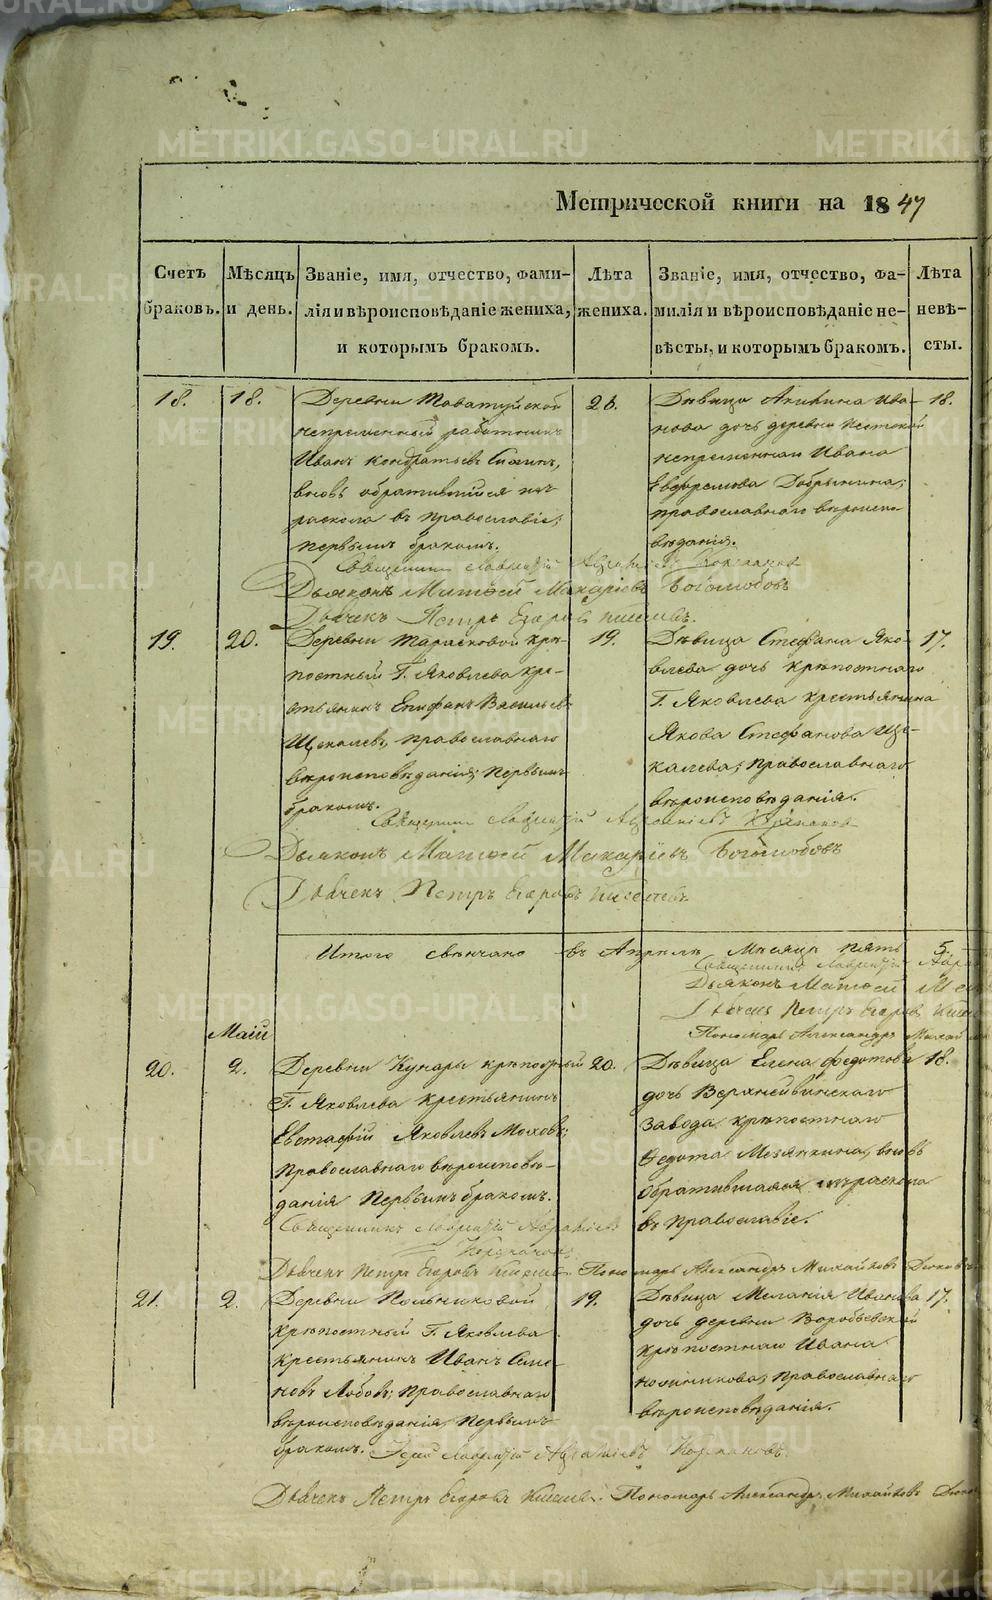 Метрической книги на 1847
Счетъ браковъ.
Мѣсяцъ и день.
Званіе, имя, отчество, фами-
лія и вѣроисповѣданіе жениха,
и которымъ бракомъ.
Лѣта жениха.
Званіе, имя, отчество, фа-
милія и вѣроисповѣданіе не-
вѣсты, и которымъ бракомъ.
Лѣта невѣ-
сты.
18.
18.
Деревни Таватуйской
непременный работникъ
Иванъ Кондратьевъ
вновь обратившійся изъ
раскола въ православіе;
первымъ бракомъ.
26.
Дѣвица Акилина Ива-
нова дочь деревни
непременнаго Ивана
Евфремова Добрынина;
православнаго вѣроиспо-
вѣданія.
18.
Священникъ Лаврентій
Дьяконъ Матѳей Макаріевъ Боголюбовъ
Дьячекъ Петръ Егоровъ Киселевъ.
19.
20.
Деревни Тарасковой крѣ-
постный Г. Яковлева кре-
стьянинъ Епифанъ Васильевъ
Щекалевъ, православнаго
вѣроисповѣданія; первымъ
бракомъ.
19.
Дѣвица Стефанида Яко-
влева дочь крѣпостнаго
Г. Яковлева крестьянина
Якова Стефанова Ще-
калева; православнаго
вѣроисповѣданія.
17.
Священникъ Лаврентій
Дьяконъ Матѳей Макаріевъ Боголюбовъ
Дьячекъ Петръ Егоровъ Киселевъ
Итого свѣнчано въ Апрѣлѣ Мѣсяцѣ пять 5.
Священникъ Лаврентій
Дьяконъ Матѳей
Дьячекъ Петръ Егоровъ
Пономарь Александръ
Маій
20.
2.
Деревни Кунары крѣпостный
Г. Яковлева крестьянинъ
Евстафій Яковлевъ Моховъ;
православнаго вѣроисповѣ-
данія первымъ бракомъ.
20.
Дѣвица Елена Федотова
дочь Верхнейвинскаго
завода крѣпостнаго
Федота вновь
обратившаяся изъ раскола
въ православіе.
18.
Священникъ Лаврентій
Дьячекъ Петръ Егоровъ Киселевъ Пономарь Александръ Михайловъ
21.
2.
Деревни
крѣпостный Г. Яковлева
крестьянинъ Иванъ Семе-
новъ Лобовъ; православнаго
вѣроисповѣданія, первымъ
бракомъ.
19.
Дѣвица Меланія Иванова
дочь деревни Воробьевской
крѣпостнаго Ивана
православнаго
вѣроисповѣданія.
17.
Іерей Лаврентій
Дьячекъ Петръ Егоровъ Киселевъ. Пономарь Александръ Михайловъ
METRIKI.GASO-URAL.RU